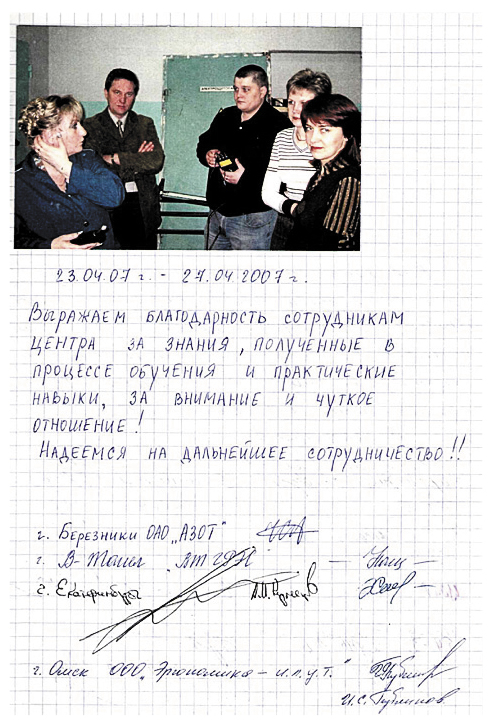 23.04.07 г. - 27.04.2007 г.
Выражаем благодарность сотрудникам
центра за знания, полученные в
процессе обучения и практические
навыки, за внимание и чуткое
отношение!
Надеемся на дальнейшее сотрудничество!!
г. Березники ОАО „АЗОТ"
г.
г. Екатеринбург
г. Омск ООО „Эргономика - и.п.у.т."
И.С.